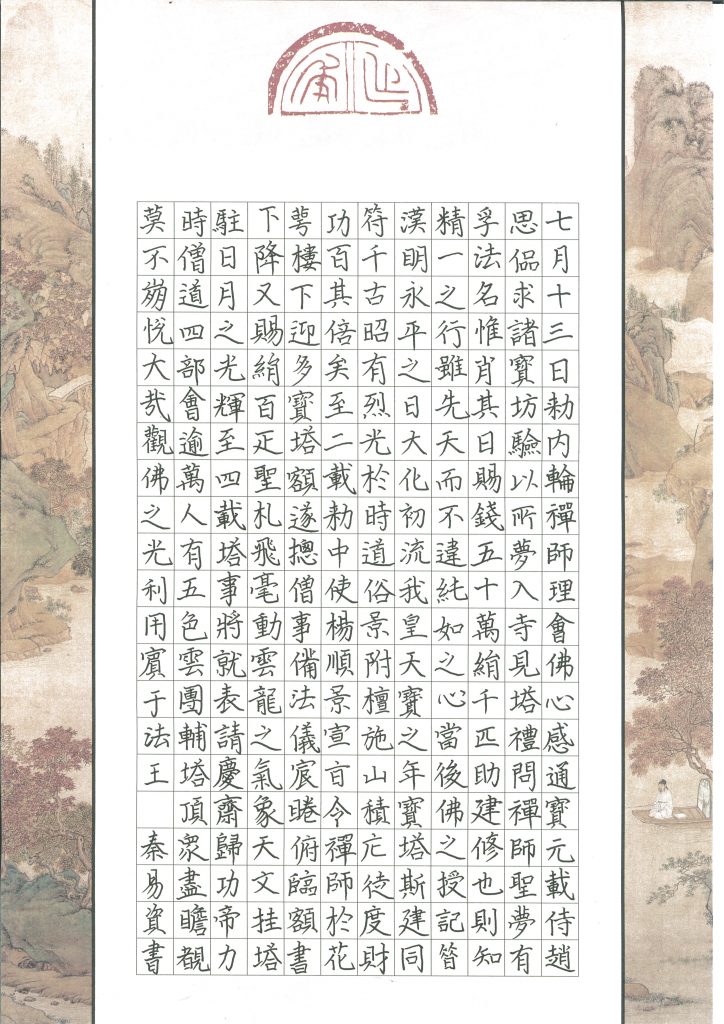 七月十三日勅内輪禪師理會佛心感通寶元載侍趙
思偘求諸寶坊驗以所夢入寺見塔禮問禪師聖夢有
孚法名惟肖其日賜錢五十萬絹千匹助建修也則知
精一之行雖先天而不違純如之心當後佛之授記昝
漢明永平之日大化初流我皇天寶之年寶塔斯建同
符千古昭有烈光於時道俗景附檀施山積庀徒度財
功百其倍矣至二載勅中使楊順景宣㫖令禪師於花
萼樓下迎多寶塔額遂摠僧事備法儀宸睠俯臨額書
下降又賜絹百疋聖札飛毫動雲龍之氣象天文挂塔
駐日月之光輝至四載塔事將就表請慶齋歸功帝力
時僧道四部會逾萬人有五色雲團輔塔頂衆盡瞻覩
莫不崩悅大哉觀佛之光利用賓于法王 秦易資書